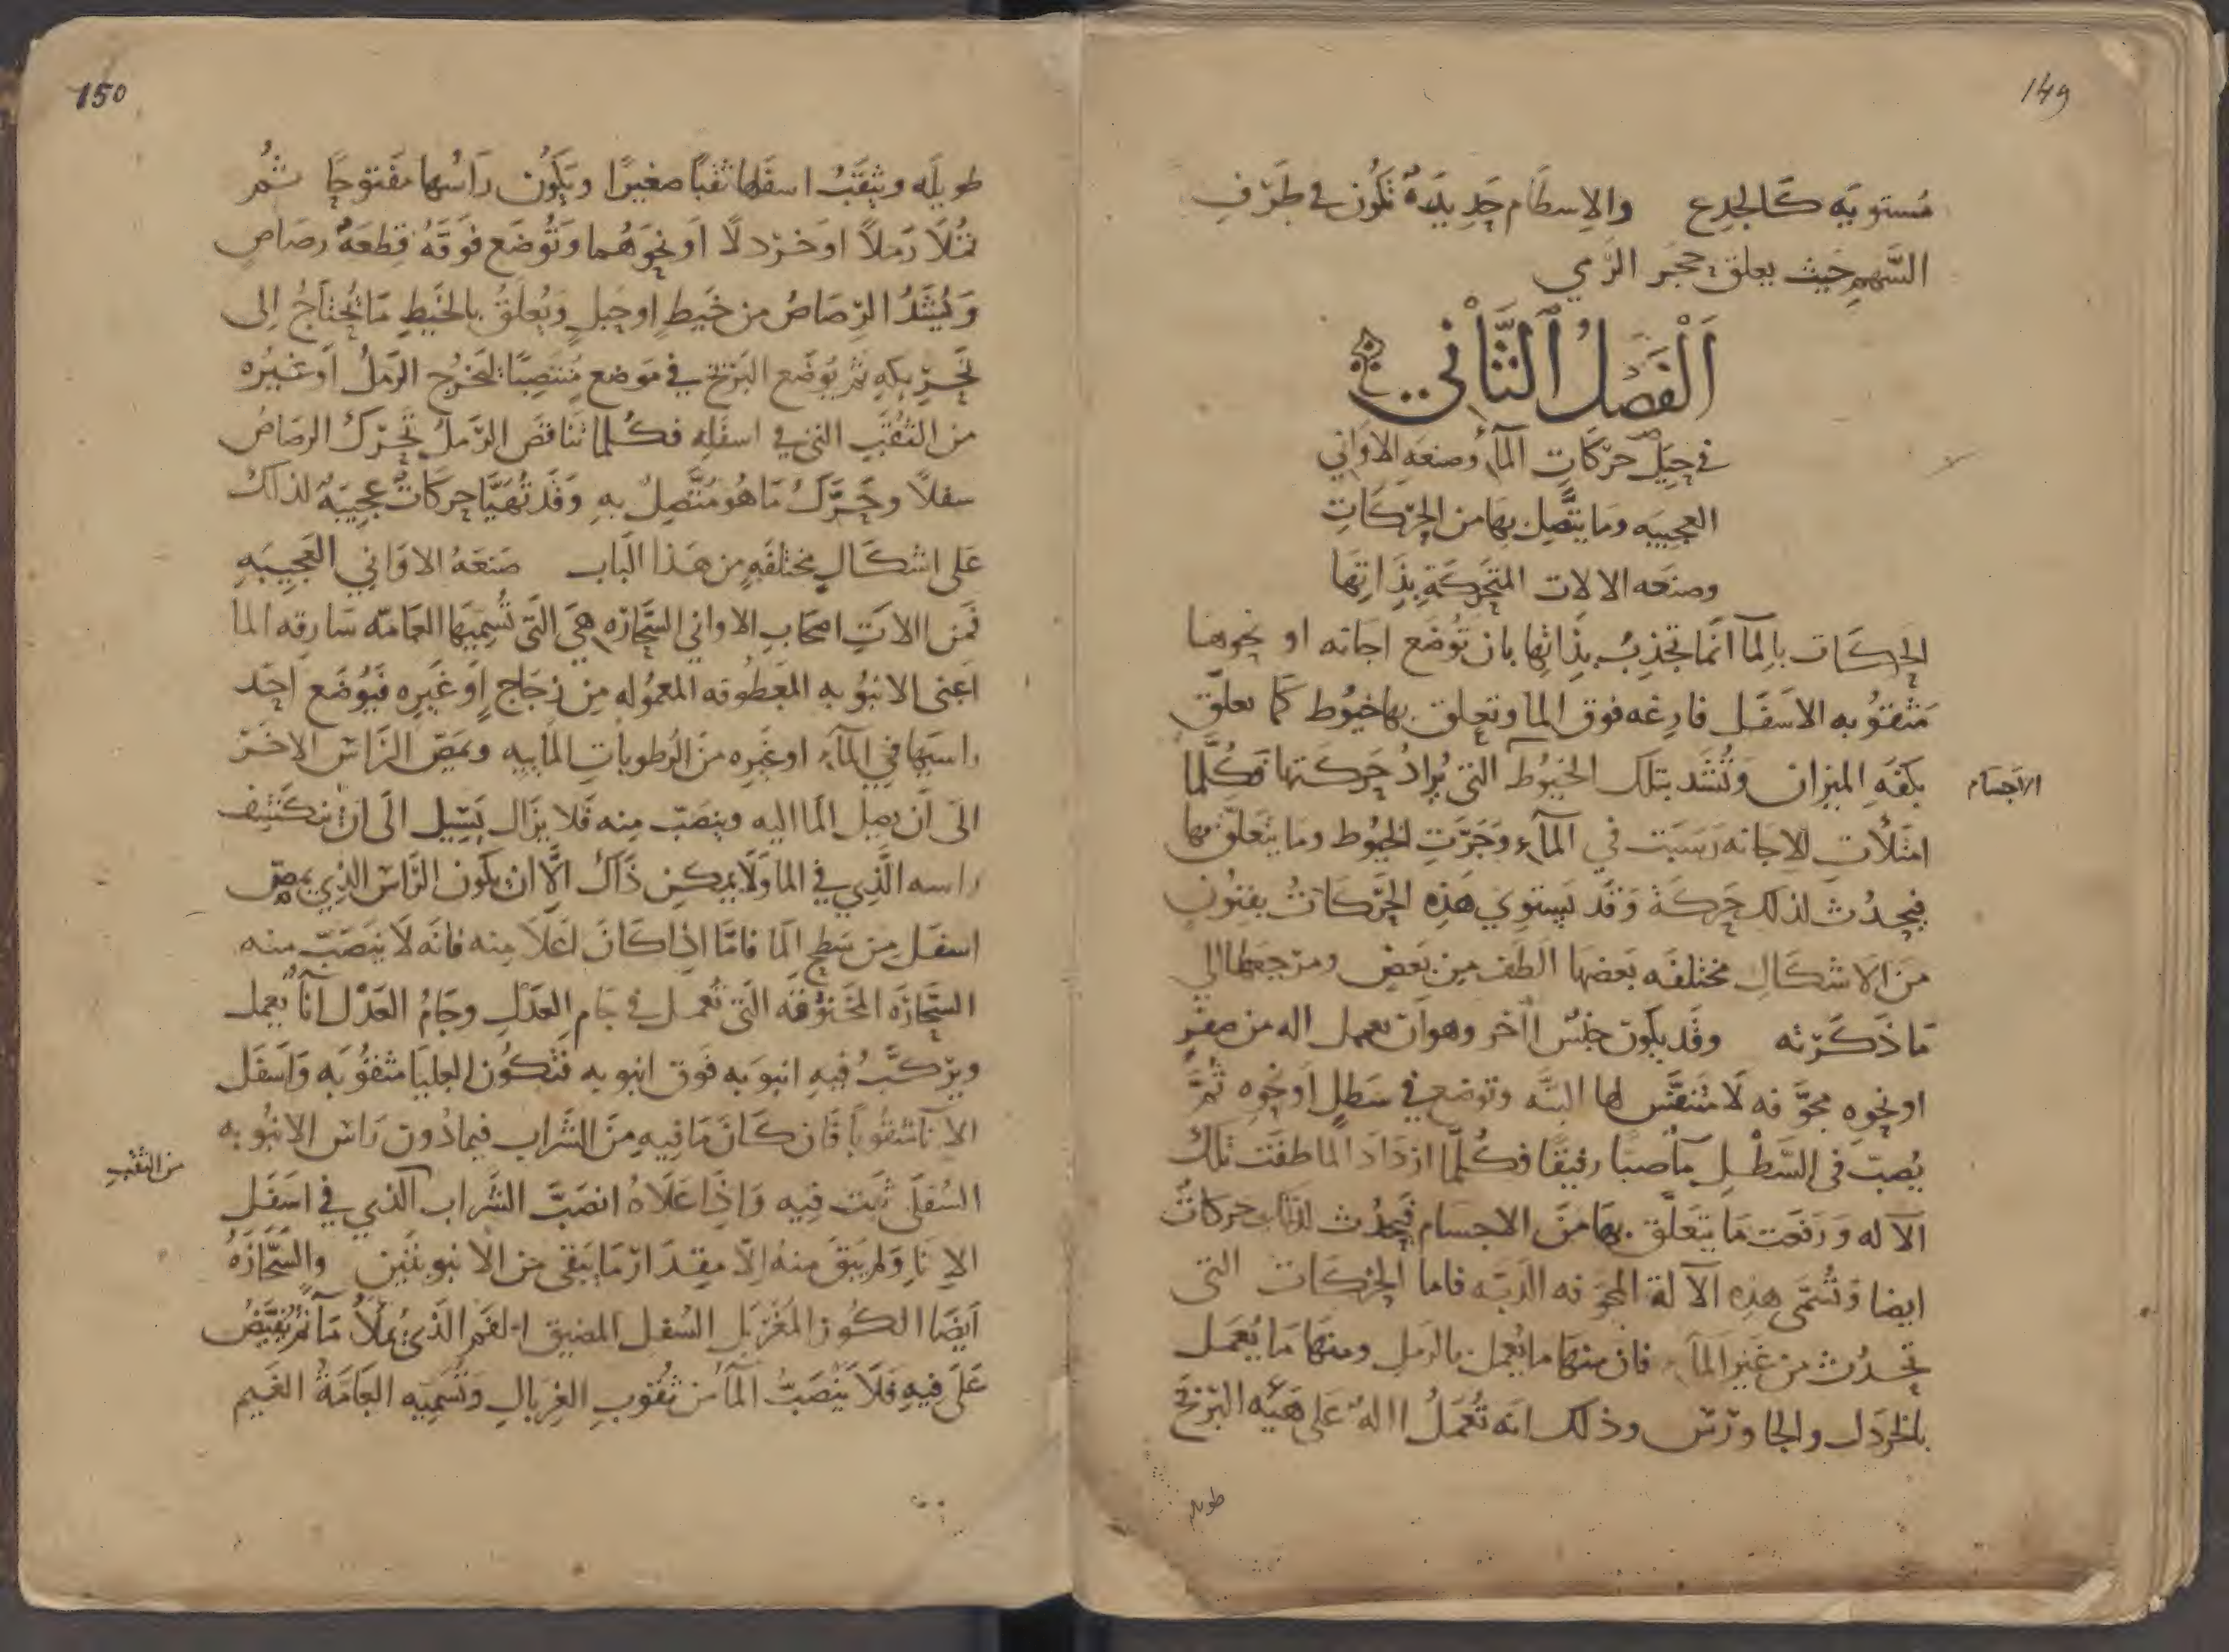 149
مُستويه كالجذع والإسطام حديدة تكون في طرف
السهم حيث يعلق حجر الرمي
الفصل الثاني
في حيل حركات الماء وصنعه الاواني
العجيبه وما يتصل بها من الحركات
وصنعه الالات المتحركة بذاتها
الحركات بالما انما تجذب بذاتها بان توضع اجانه او نحوها
مثقوبه الاسفل فارغه فوق الما وتعلق بها خيوط كما تعلق
بكفه الميزان وتشد بتلك الخيوط التي يراد حركتها فكلما
الاجسام
امتلأت الاجانه رسبت في الماء وجرت الخيوط وما يتعلق بها
فيحدث لذلك حركة وقد يستوي هذه الحركات بفنون
من الاشكال مختلفه بعضها الطف من بعض ومرجعها الي
ما ذكرته وقد يكون جنس اخر وهو ان يعمل اله من صفر
او نحوه مجوفه لا متنفس لها البته وتوضع في سطل او نحوه ثم
يصب في السطل ما صبا رفيقا فكلما ازداد الما طفت تلك
الاله ورفعت ما يتعلق بها من الاجسام فيحدث لذلك حركات
ايضا وتسمى هذه الآلة المجوفه الدبه فاما الحركات التي
تحدث من غير الماء فان منها ما يعمل بالرمل ومنها ما يعمل
بالخردل والجاورس وذلك انه تعمل اله على هيئه البربخ
طويله
150
طويله ويثقب اسفلها ثقبا صغيرا ويكون راسها مفتوحا ثم
تملا رملا او خردلا او نحوهما وتوضع فوقه قطعة رصاص
ويشد الرصاص من خيط او حبل ويعلق بالخيط ما يحتاج الى
تحريكه ثم يوضع البربخ في موضع منتصبا ليخرج الرمل او غيره
من الثقب التي في اسفله فكلما تناقص الرمل تحرك الرصاص
سفلا وحرك ما هو متصل به وقد تهيا حركات عجيبة لذلك
على اشكال مختلفه من هذا الباب صنعه الاواني العجيبه
فمن الات اصحاب الاواني السحاره هي التي تسميها العامه سارقه الما
اعني الانبوبه المعطوفه المعموله من زجاج او غيره فيوضع احد
راسيها في الماء او غيره من الرطوبات المائيه ويمص الراس الاخر
الى ان يصل الما اليه وينصب منه فلا يزال يسيل الى ان ينكشف
راسه الذي في الما ولا يمكن ذاك الا ان يكون الراس الذي يمص
اسفل من سطح الما فاما اذا كان اعلا منه فانه لا ينصب منه
السحاره المخنوقه التي تعمل في جام العدل وجام العدل اناء يعمل
ويركب فيه انبوبه فوق انبوبه فتكون العليا مثقوبه واسفل
الانا مثقوبا فان كان ما فيه من الشراب فيما دون راس الانبوبه
من الثقب
السفلى ثبت فيه واذا علاه انصب الشراب الذي في اسفل
الانا ولم يبق منه الا مقدار ما يبقى من الانبوبتين والسحاره
ايضا الكوز المغربل السفل المضيق الفم الذي يملا ما ثم يقبض
على فيه فلا ينصب الما من ثقوب الغربال وتسميه العامة الغيم